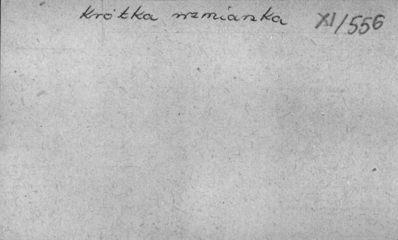 krótka wzmianka XI/556